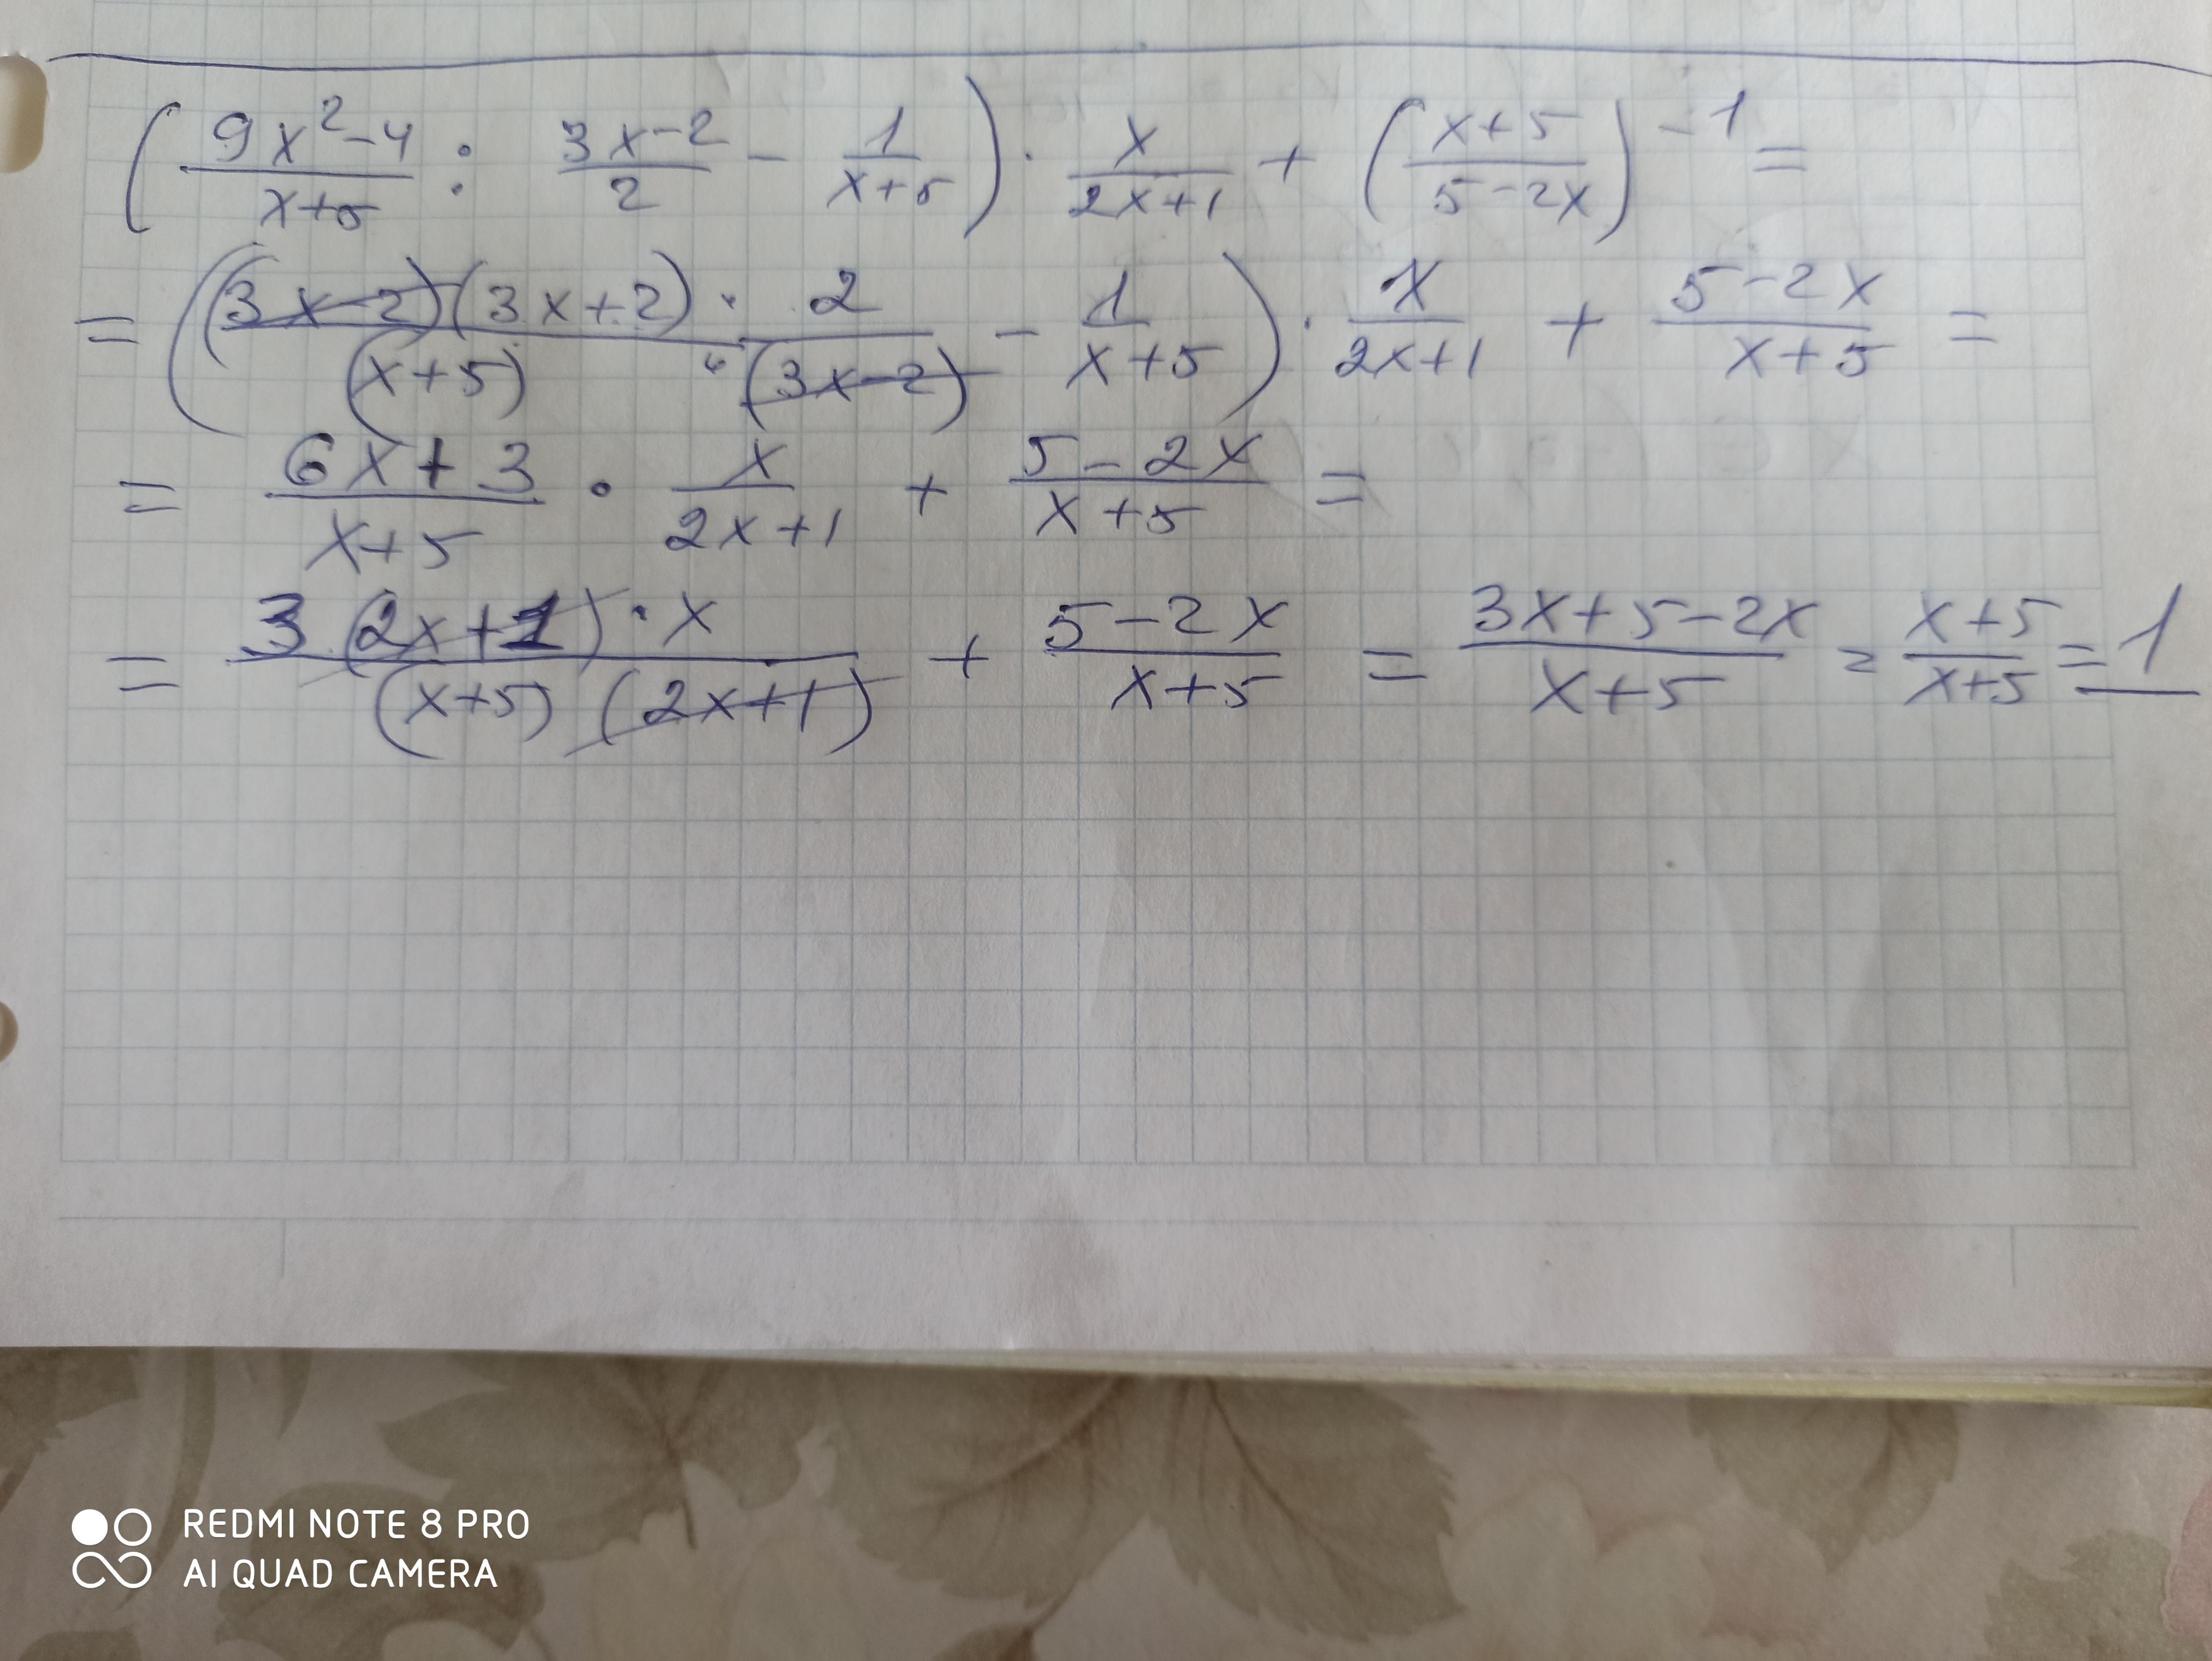 (9x²-4/x+5 : 3x-2/2 - 1/x+5) · x/2x+1 + (x+5/5-2x)⁻¹ =
= ((3x-2)(3x+2)·2/(x+5)·(3x-2) - 1/x+5) · x/2x+1 + 5-2x/x+5 =
= 6x+3/x+5 · x/2x+1 + 5-2x/x+5 =
= 3(2x+1)·x/(x+5)(2x+1) + 5-2x/x+5 = 3x+5-2x/x+5 = x+5/x+5 = 1
REDMI NOTE 8 PRO
AI QUAD CAMERA